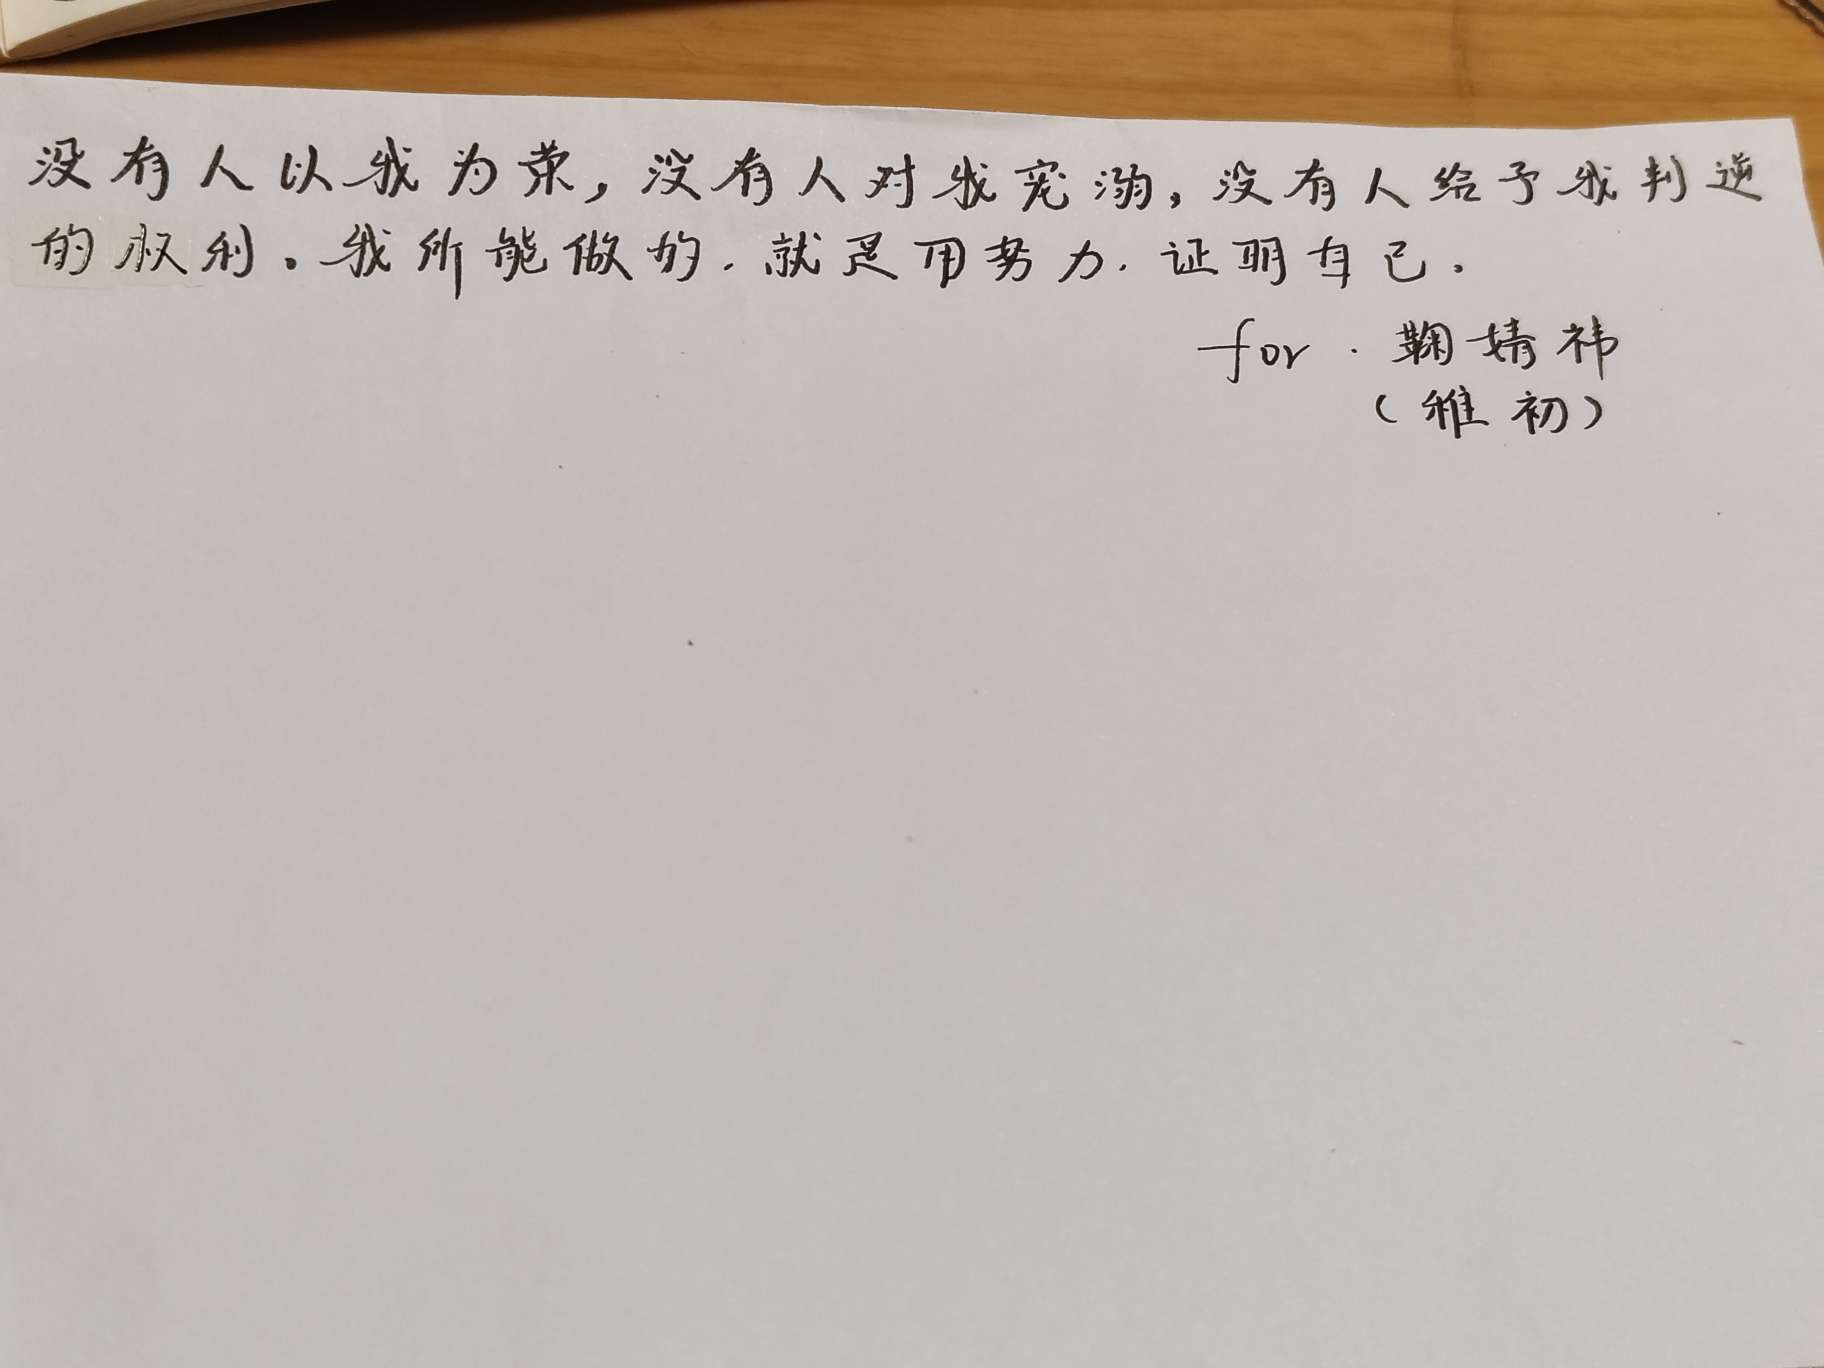 没有人以我为荣,没有人对我宠溺,没有人给予我判逆
的权利。我所能做的.就是用努力.证明自己.
for.鞠婧祎
(稚初)